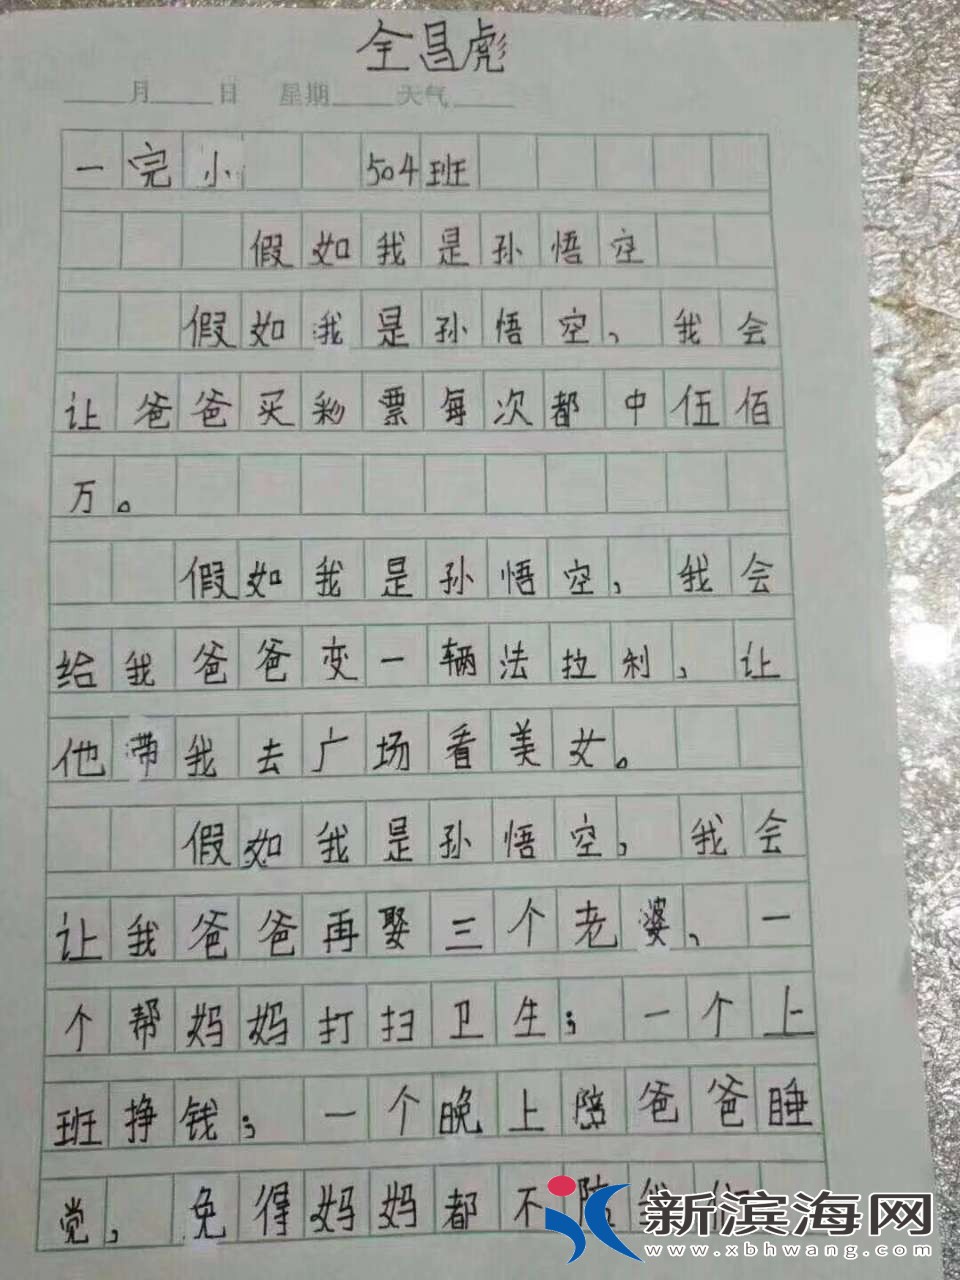 全昌彪
月 日 星期 天气
一完小 504班
假如我是孙悟空
假如我是孙悟空、我会
让爸爸买彩票每次都中伍佰
万。
假如我是孙悟空,我会
给我爸爸变一辆法拉利,让
他带我去广场看美女。
假如我是孙悟空,我会
让我爸爸再娶三个老婆、一
个帮妈妈打扫卫生;一个上
班挣钱;一个晚上陪爸爸睡
觉,免得妈妈都不陪我
新滨海网
www.xbhwang.com